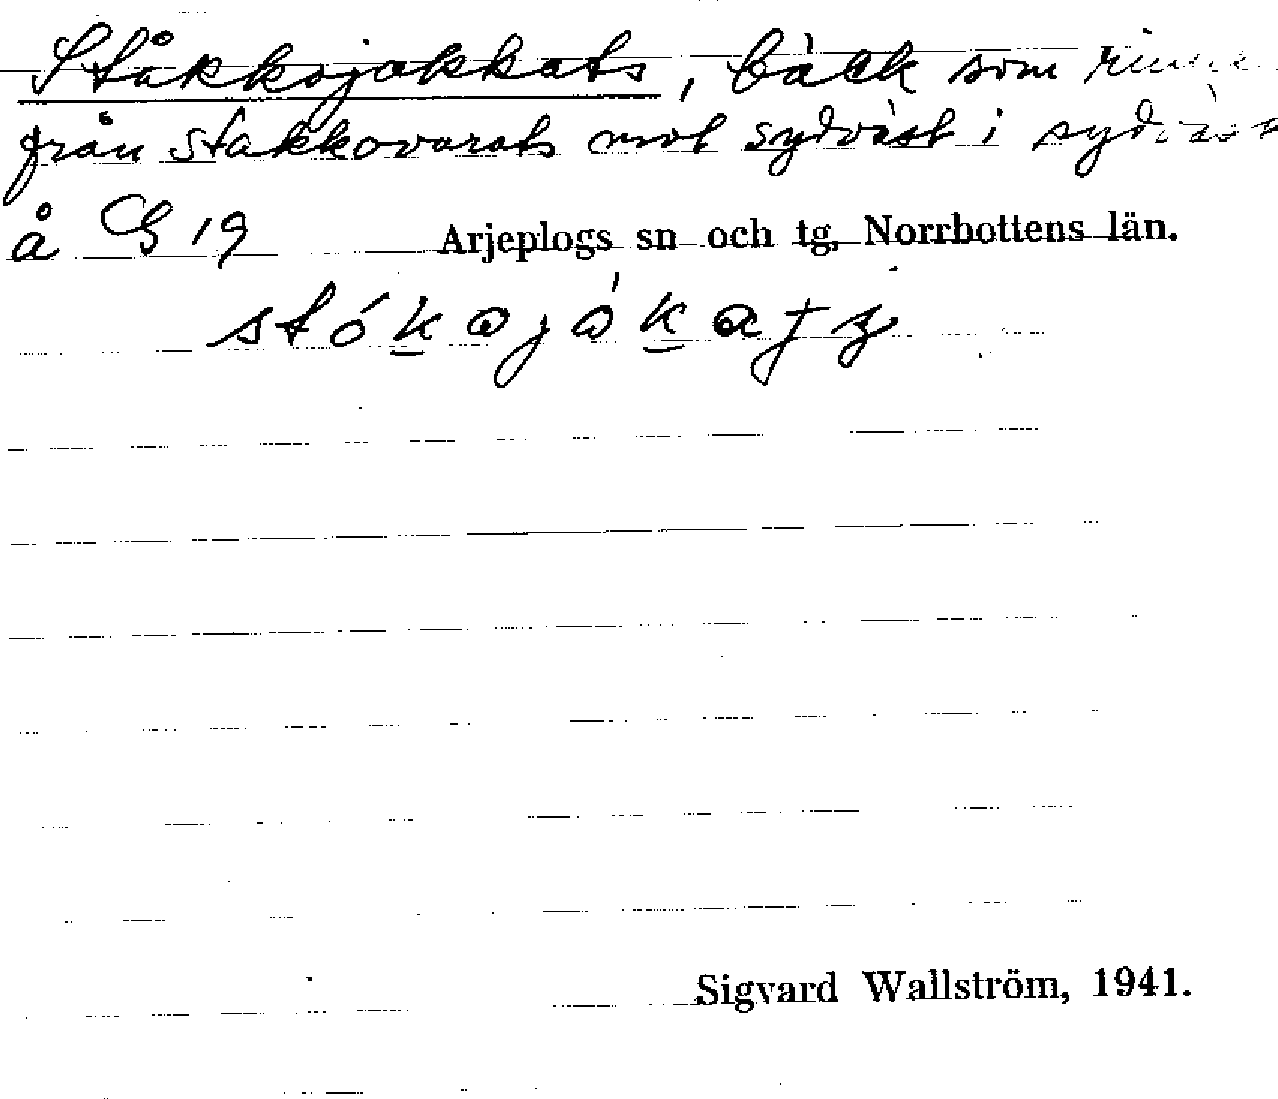 Ståkksjakkats, bäck som rinner
från Stakkovarats mot sydväst i sydväst
å G 19 Arjeplogs sn och tg, Norrbottens län.
stókajåkatş
Sigvard Wallström, 1941.